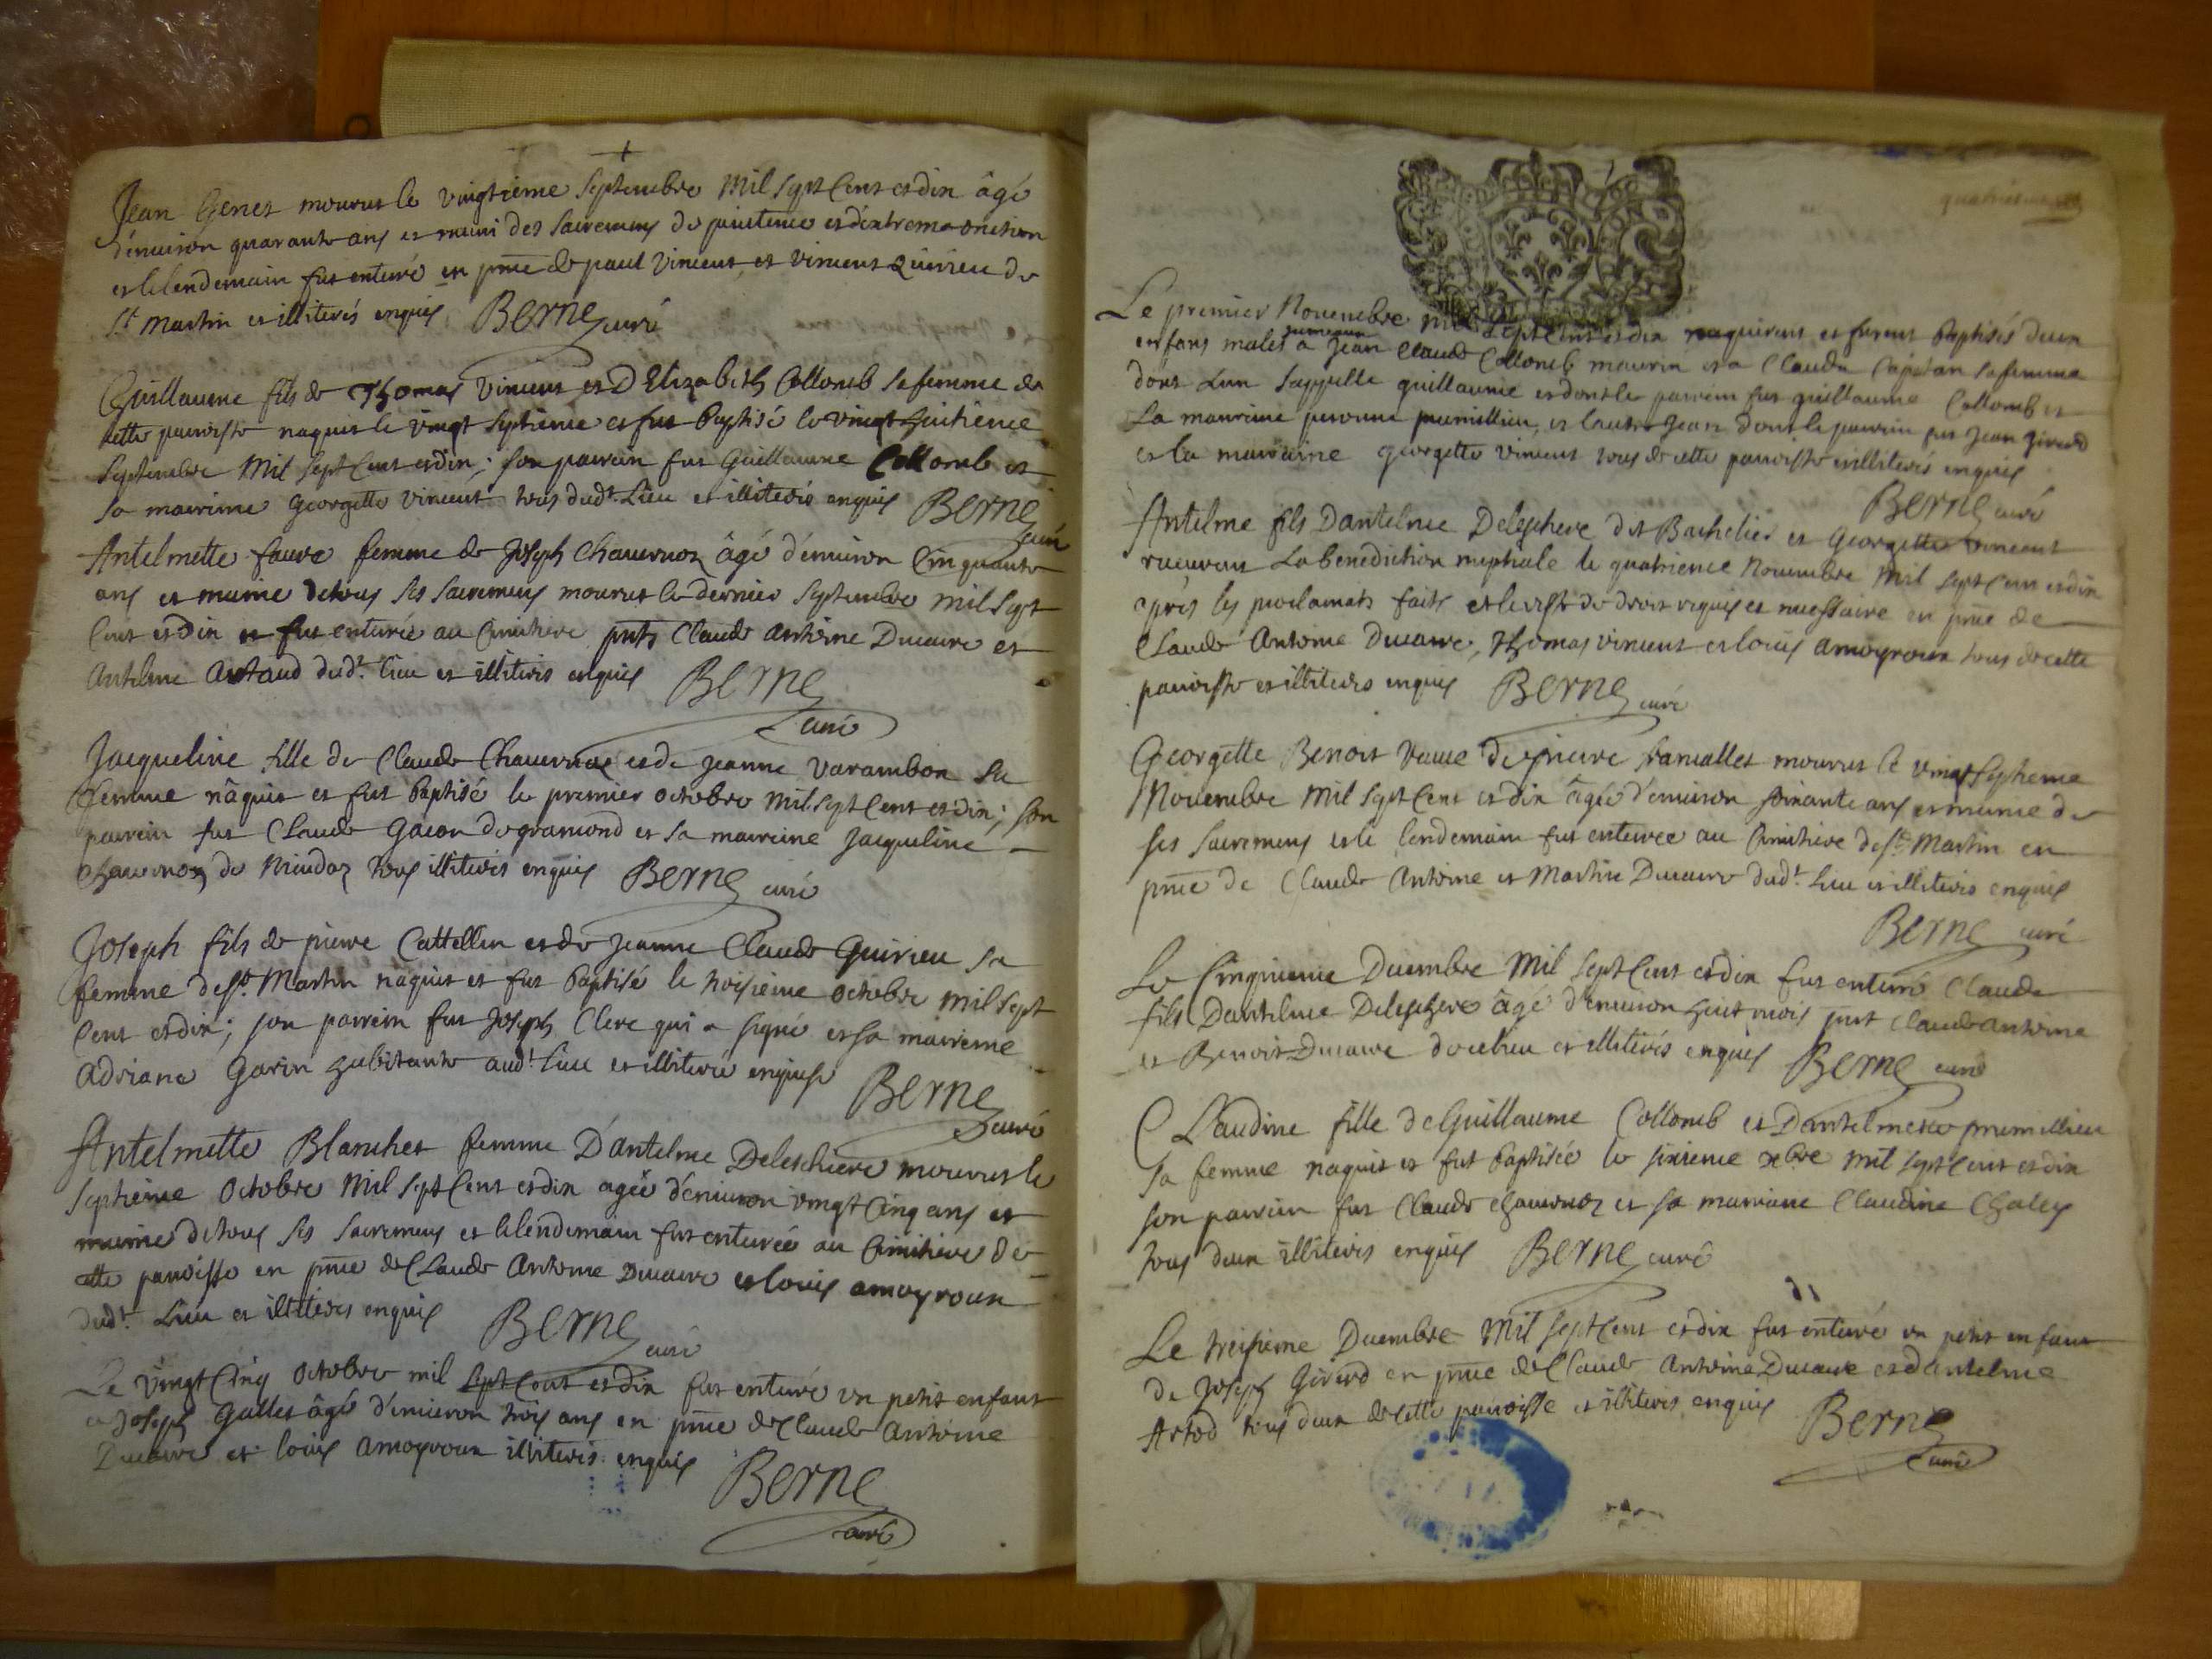 Jean Genet mourut le vingtieme Septembre mil sept cent et dix âgé
d'environ quarante ans et muni des sacremens de penitence et d'extreme onction
et le lendemain fut enterré en pnce de paul vincent et vincent Quirieu de
St martin et illiterés enquis Berne curé
Guillaume fils de Thomas vincent et D'Elizabeth Collomb sa femme de
cette parroisse naquit le vingt septieme et fut baptisé le vingt huitieme
Septembre mil sept cent et dix; son parrain fut Guillaume Collomb et
sa marrine georgette vincent tous dudt. Lieu et illiterés enquis Berne
curé
Antelmette favre femme de Joseph Chavernoz âgé d'environ cinquante
ans et munie de tous ses sacremens mourut le dernier septembre mil sept
cent et dix et fut enterrée au cimitiere pnts Claude antoine Ducaire et
Antelme Artaud dudt. lieu et illiterés enquis Berne
curé
Jacqueline fille de Claude Chavernoz et de jeanne varambon sa
femme nâquit et fut baptisé le premier octobre mil sept cent et dix; son
parrain fut Claude gacon de gramond et sa marreine jacqueline
chavernoz de tous illiterés enquis Berne curé
Joseph fils de pierre Cattellin et de jeanne Claude Quirieu sa
femme de St. Martin nâquit et fut baptisé le troisieme octobre mil sept
cent et dix; son parrein fut Joseph Clerc qui a signé et sa marreine
Adriane Gavin habitante audt. lieu et illiterée enquise Berne
curé
Antelmette Blanchet femme D'antelme Deleschere mourut le
septieme octobre mil sept cent et dix agée d'environ vingt cinq ans et
munie de tous ses sacremens et le lendemain fut enterrée au cimitiere de
cette parroisse en pnce de Claude Antoine Ducaire et louis amoyroux
dudt. Lieu et illiterés enquis Berne curé
Le vingt cinq octobre mil sept cent et dix fut enterré un petit enfant
a Joseph Gallet âgé d'environ trois ans en pnce de Claude Antoine
Ducaire et louis amoyroux illiterés enquis Berne
curé
quatriesme
Le premier Novembre mil sept cent et dix naquirent et furent baptisés deux
jumeaux
enfans males a Jean Claude Collomb maurin et a Claude Capitan sa femme
dont l'un s'appelle guillaume et dont le parrein fut guillaume Collomb et
la marreine peronne prumillieu, et l'autre jean dont le parrein fut jean girerd
et la marraine georgette vincent tous de cette parroisse et illiterés enquis
Berne curé
Antelme fils D'antelme Deleschere dit Bachelier et Georgette vincent
receurent la benediction nuptiale le quatrieme Novembre mil sept cent et dix
après les proclamats faits et le reste de droit requis et necessaire en pnce de
Claude Antoine Ducaire, Thomas vincent et louis amoyroux tous de cette
parroisse et illiterés enquis Berne curé
Georgette Benoit veuve de pierre mourut le vingt septieme
Novembre mil sept cent et dix âgée d'environ soixante ans et munie de
ses sacremens et le lendemain fut enterrée au cimitiere de St. Martin en
pnce de Claude Antoine et Martin Ducaire dudt. lieu et illiterés enquis
Berne curé
Le Cinquieme Decembre mil sept cent et dix fut enterré Claude
fils D'antelme Deleschere âgé d'environ huit mois pnt Claude antoine
et Benoit Ducaire de ce lieu et illiterés enquis Berne curé
Claudine fille de Guillaume Collomb et D'antelmette prumillieu
sa femme naquit et fut baptisée le sixieme xbre mil sept cent et dix
son parrein fut Claude chavernoz et sa marraine Claudine Chaley
tous deux illiterés enquis Berne curé
Le treisieme Decembre mil sept cent et dix fut enterré un petit enfant
de Joseph Girerd en pnce de Claude Antoine Ducaire et d'antelme
Artod tous deux de cette parroisse et illiterés enquis Berne
curé